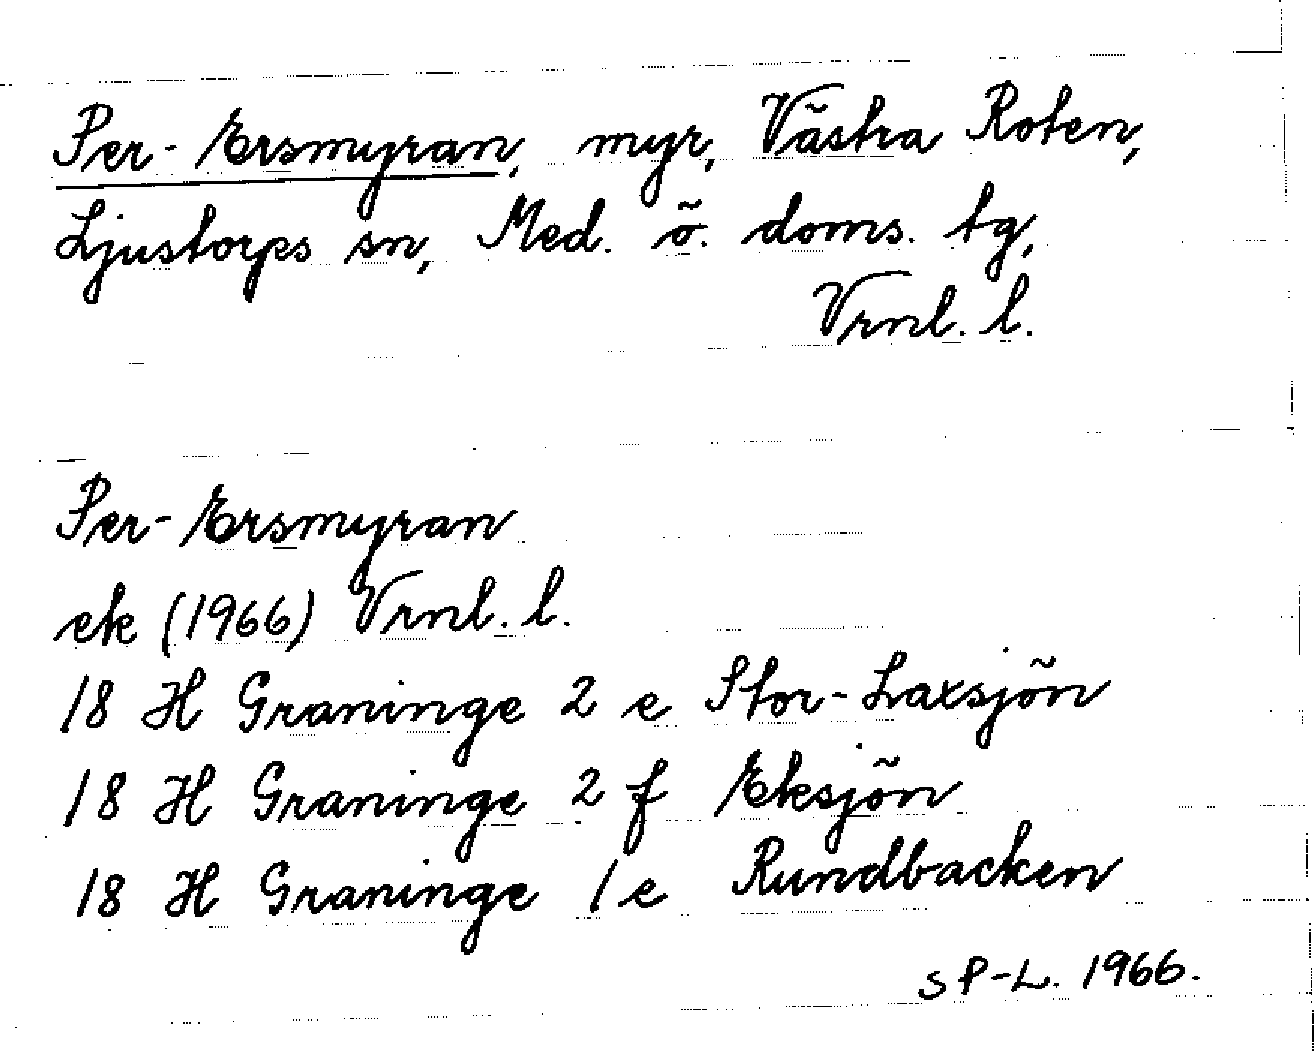 Per-Ersmyran, myr, Västra Roten,
Ljustorps sn, Med. ö. doms. tg,
Vrnl. l.
Per-Ersmyran
ek (1966) Vrnl. l.
18 H Graninge 2 e Stor-Laxsjön
18 H Graninge 2 f Eksjön
18 H Graninge 1 e Rundbacken
S P-L. 1966.